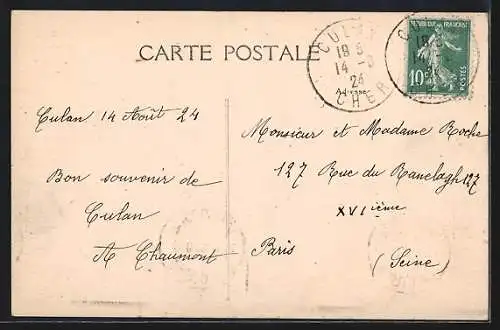 CARTE POSTALE
CULAN
18 5
14 -8
24
CHER
REPUBLIQUE FRANÇAISE
10c
POSTES
Culan 14 Août 24
Bon souvenir de
Culan
A Chaumont
Monsieur et Madame Roche
127 Rue du Ranelagh 127
XVIième
Paris
(Seine)